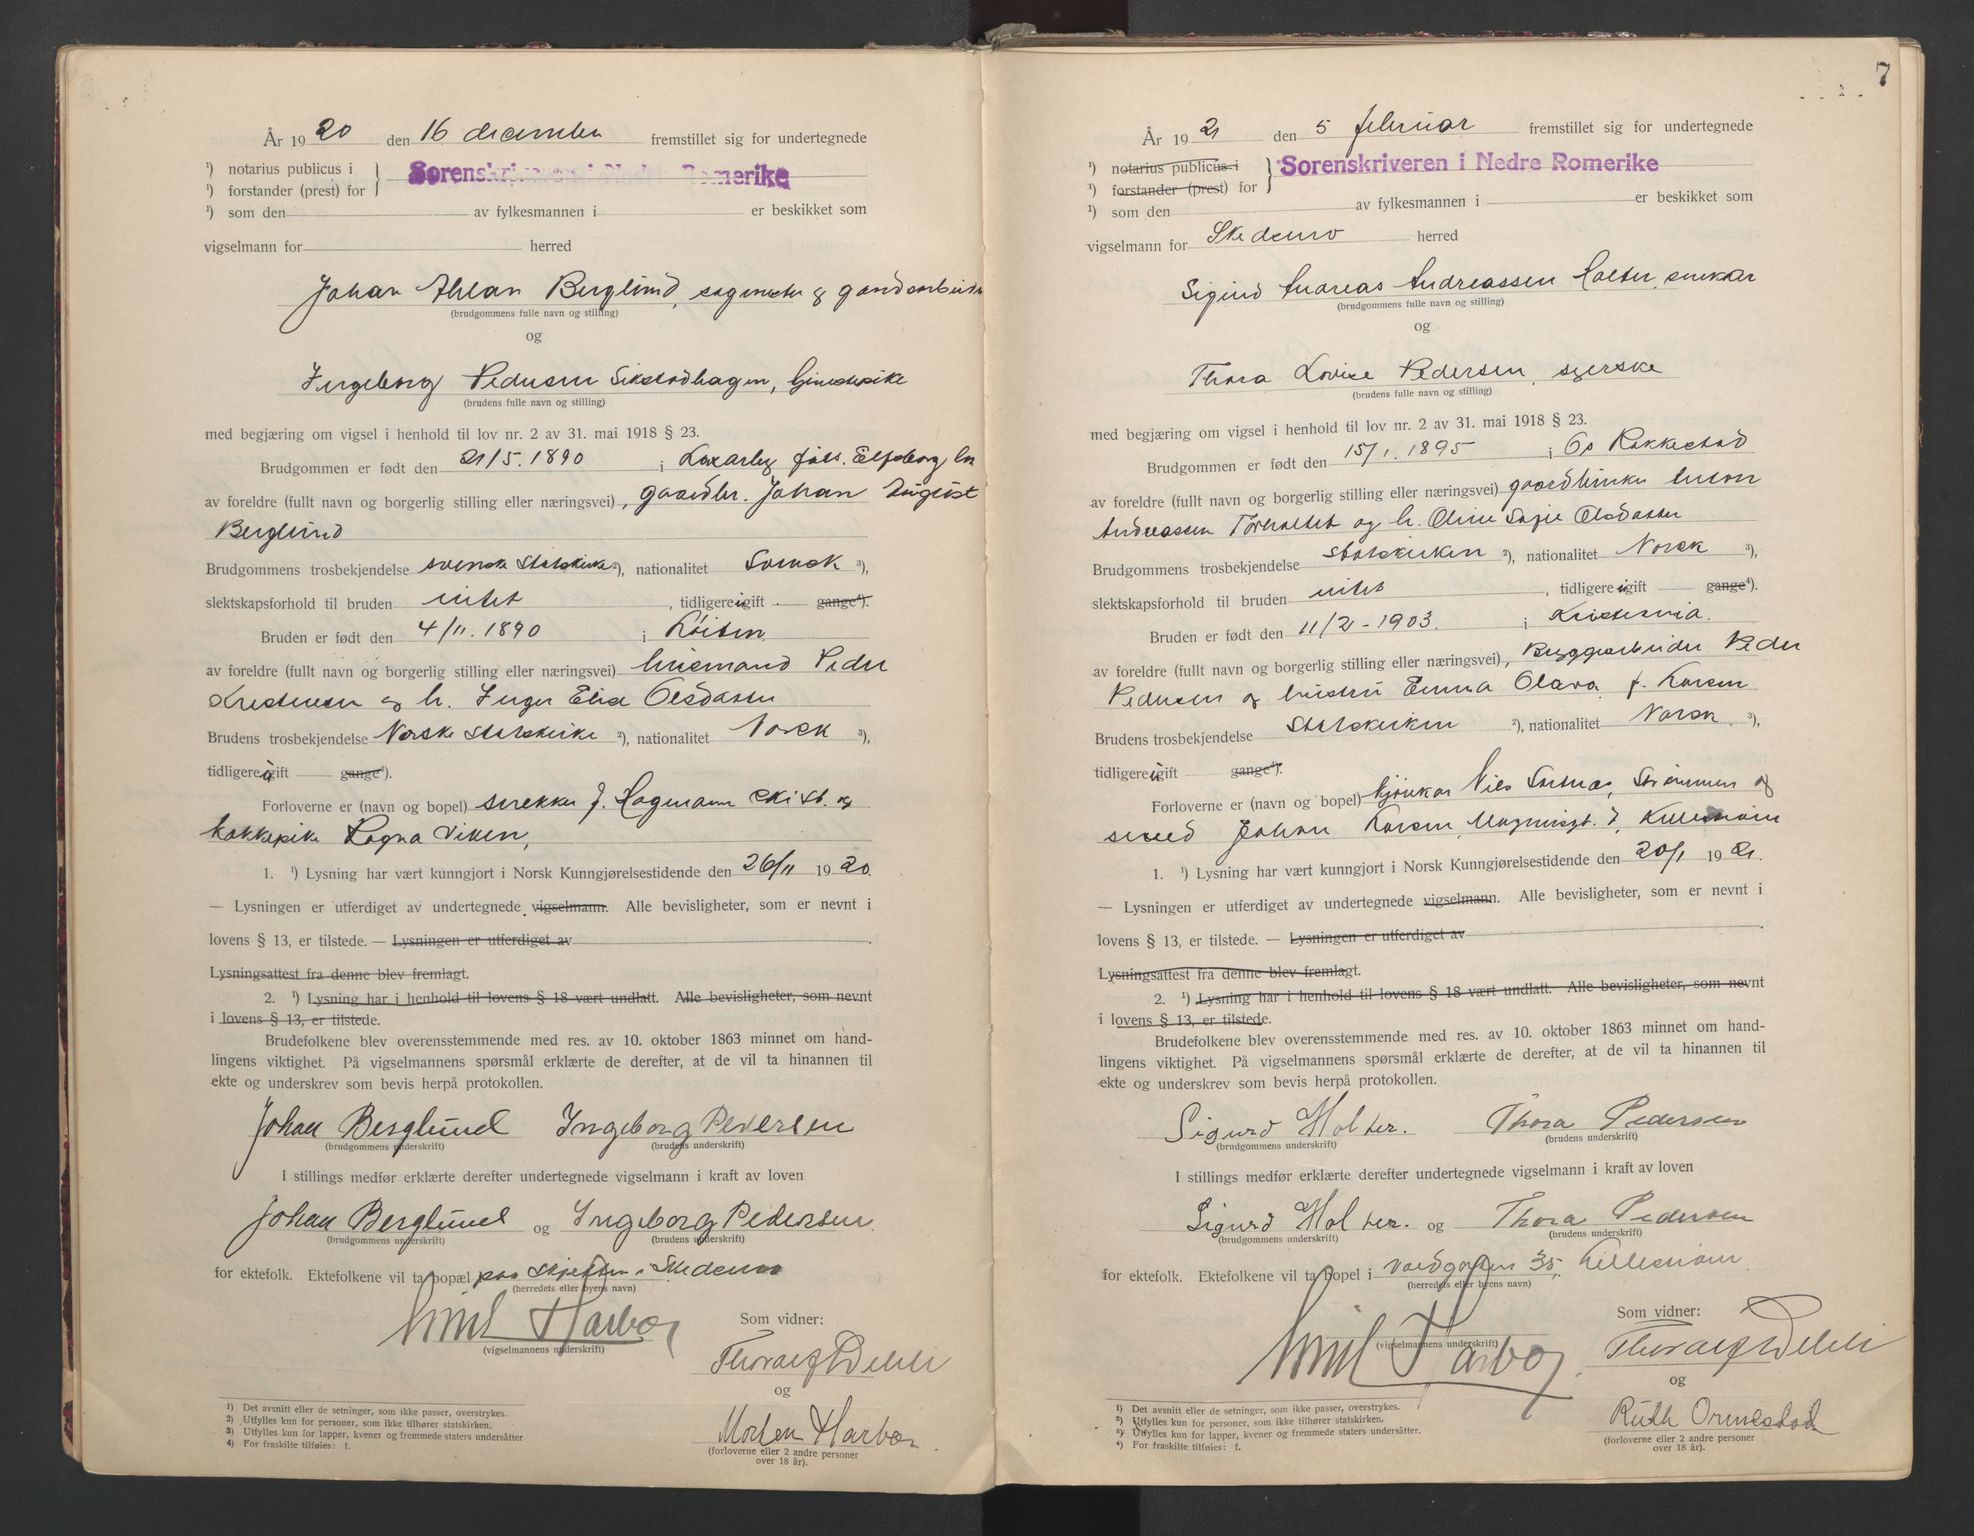 År 1920 den 16 december fremstillet sig for undertegnede
¹) notarius publicus i
¹) forstander (prest) for
Sorenskriveren i Nedre Romerike
¹) som den av fylkesmannen i er beskikket som
vigselmann for herred
Johan Berglund, og gaardsarbeider
(brudgommens fulle navn og stilling)
og
Ingeborg Pedersen Sikstadhagen, tjenestepike
(brudens fulle navn og stilling)
med begjæring om vigsel i henhold til lov nr. 2 av 31. mai 1918 § 23.
Brudgommen er født den 21/5. 1890 i Elfsborg
av foreldre (fullt navn og borgerlig stilling eller næringsvei), gaardbr. Johan August
Berglund
Brudgommens trosbekjendelse svenske Statskirke ²), nationalitet Svensk ³),
slektskapsforhold til bruden intet, tidligere igift gange⁴).
Bruden er født den 4/11. 1890 i Löiten
av foreldre (fullt navn og borgerlig stilling eller næringsvei) husmand Peder
Kristensen og h. Inger Elise Olsdatter
Brudens trosbekjendelse Norske Statskirke ²), nationalitet Norsk ³),
tidligere igift gange⁴).
Forloverne er (navn og bopel) snekker J. Hagmann Ski st. og
kokkepike Ragna Viken,
1. ¹) Lysning har vært kunngjort i Norsk Kunngjørelsestidende den 26/11 1920.
— Lysningen er utferdiget av undertegnede vigselmann. Alle bevisligheter, som er nevnt i
lovens § 13, er tilstede. — Lysningen er utferdiget av
Lysningsattest fra denne blev fremlagt.
2. ¹) Lysning har i henhold til lovens § 18 vært undlatt. Alle bevisligheter, som nevnt
i lovens § 13, er tilstede.
Brudefolkene blev overensstemmende med res. av 10. oktober 1863 minnet om hand-
lingens viktighet. På vigselmannens spørsmål erklærte de derefter, at de vil ta hinannen til
ekte og underskrev som bevis herpå protokollen.
Johan Berglund Ingeborg Pedersen
(brudgommens underskrift) (brudens underskrift)
I stillings medfør erklærte derefter undertegnede vigselmann i kraft av loven
Johan Berglund og Ingeborg Pedersen
(brudgommens underskrift) (brudens underskrift)
for ektefolk. Ektefolkene vil ta bopæl paa Skjetten i Skedsmo
(herredets eller byens navn)
Emil Harboe
(vigselmannens underskrift)
Som vidner:
Thoralf Dehli
og
Morten Harboe
(forloverne eller 2 andre personer
over 18 år).
¹) Det avsnitt eller de setninger, som ikke passer, overstrykes.
²) Utfylles kun for personer, som ikke tilhører statskirken.
³) Utfylles kun for lapper, kvener og fremmede staters undersåtter
⁴) For fraskilte tilføies: f.
7
År 1921 den 5 februar fremstillet sig for undertegnede
¹) notarius publicus i
¹) forstander (prest) for
Sorenskriveren i Nedre Romerike
¹) som den av fylkesmannen i er beskikket som
vigselmann for Skedsmo herred
Sigurd Andreas Andreassen Holter, snekker
(brudgommens fulle navn og stilling)
og
Thora Lovise Pedersen, syerske
(brudens fulle navn og stilling)
med begjæring om vigsel i henhold til lov nr. 2 av 31. mai 1918 § 23.
Brudgommen er født den 15/1. 1895 i Os Rakkestad
av foreldre (fullt navn og borgerlig stilling eller næringsvei) gaardbruker Anton
Andreassen og h. Oline Sofie Olsdatter
Brudgommens trosbekjendelse Statskirken ²), nationalitet Norsk ³),
slektskapsforhold til bruden intet, tidligere igift gange⁴).
Bruden er født den 11/2 - 1903. i Kristiania.
av foreldre (fullt navn og borgerlig stilling eller næringsvei), Bryggearbeider Peder
Pedersen og hustru Emma Olava f. Larsen
Brudens trosbekjendelse Statskirken ²), nationalitet Norsk. ³),
tidligere igift gange⁴).
Forloverne er (navn og bopel) Nils Strømmen og
smed Johan Larsen, Lillestrøm
1. ¹) Lysning har vært kunngjort i Norsk Kunngjørelsestidende den 20/1 1921.
— Lysningen er utferdiget av undertegnede vigselmann. Alle bevisligheter, som er nevnt i
lovens § 13, er tilstede. — Lysningen er utferdiget av
Lysningsattest fra denne blev fremlagt.
2. ¹) Lysning har i henhold til lovens § 18 vært undlatt. Alle bevisligheter, som nevnt
i lovens § 13, er tilstede.
Brudefolkene blev overensstemmende med res. av 10. oktober 1863 minnet om hand-
lingens viktighet. På vigselmannens spørsmål erklærte de derefter, at de vil ta hinannen til
ekte og underskrev som bevis herpå protokollen.
Sigurd Holter. Thora Pedersen
(brudgommens underskrift) (brudens underskrift)
I stillings medfør erklærte derefter undertegnede vigselmann i kraft av loven
Sigurd Holter. og Thora Pedersen
(brudgommens underskrift) (brudens underskrift)
for ektefolk. Ektefolkene vil ta bopel i 35, Lillestrøm
(herredets eller byens navn)
Emil Harboe
(vigselmannens underskrift)
Som vidner:
Thoralf Dehli
og
Ruth Ormestad
(forloverne eller 2 andre personer
over 18 år).
¹) Det avsnitt eller de setninger, som ikke passer, overstrykes.
²) Utfylles kun for personer, som ikke tilhører statskirken.
³) Utfylles kun for lapper, kvener og fremmede staters undersåtter.
⁴) For fraskilte tilføies: f.